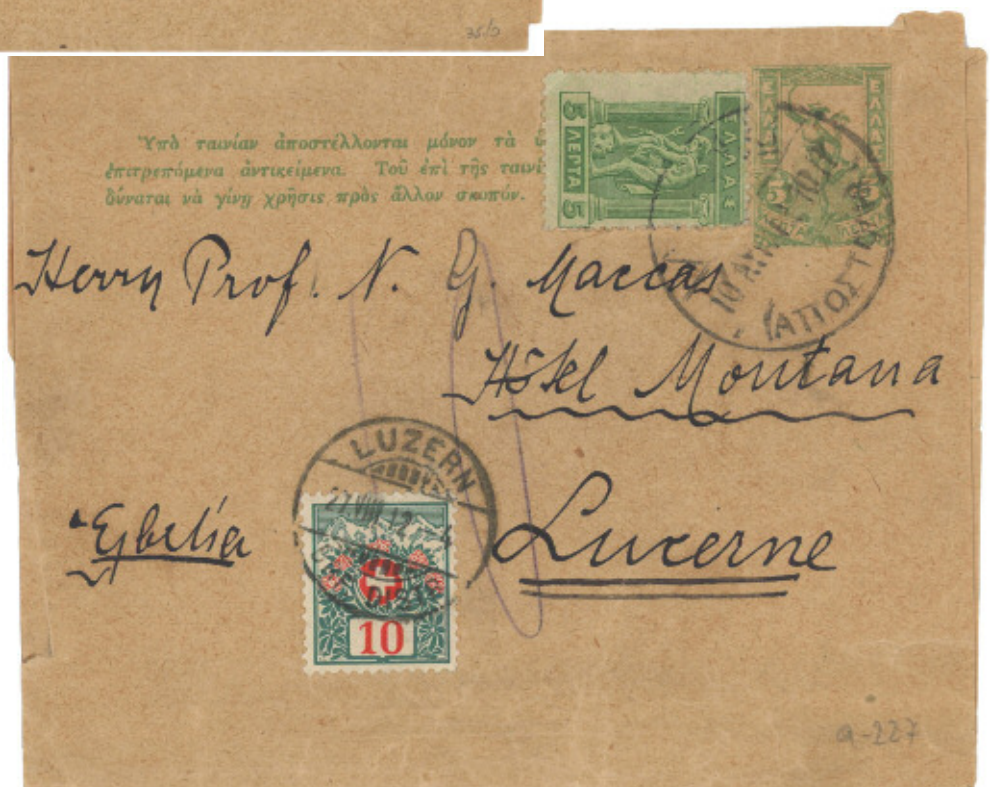 35/
Ὑπὸ ταινίαν ἀποστέλλονται μόνον τὰ
ἐπιτρεπόμενα ἀντικείμενα. Τοῦ ἐπὶ τῆς ταινί
δύναται νὰ γίνῃ χρῆσις πρὸς ἄλλον σκοπόν.
ΕΛΛΑΣ
5 ΛΕΠΤΑ 5
ΕΛΛΑΣ ΕΛΛΑΣ
5 5
Herrn Prof. N. G. Maccas
Hôtel Montana
Lucerne
Ἐλβετία
LUZERN
27.VIII.12
10
a-227